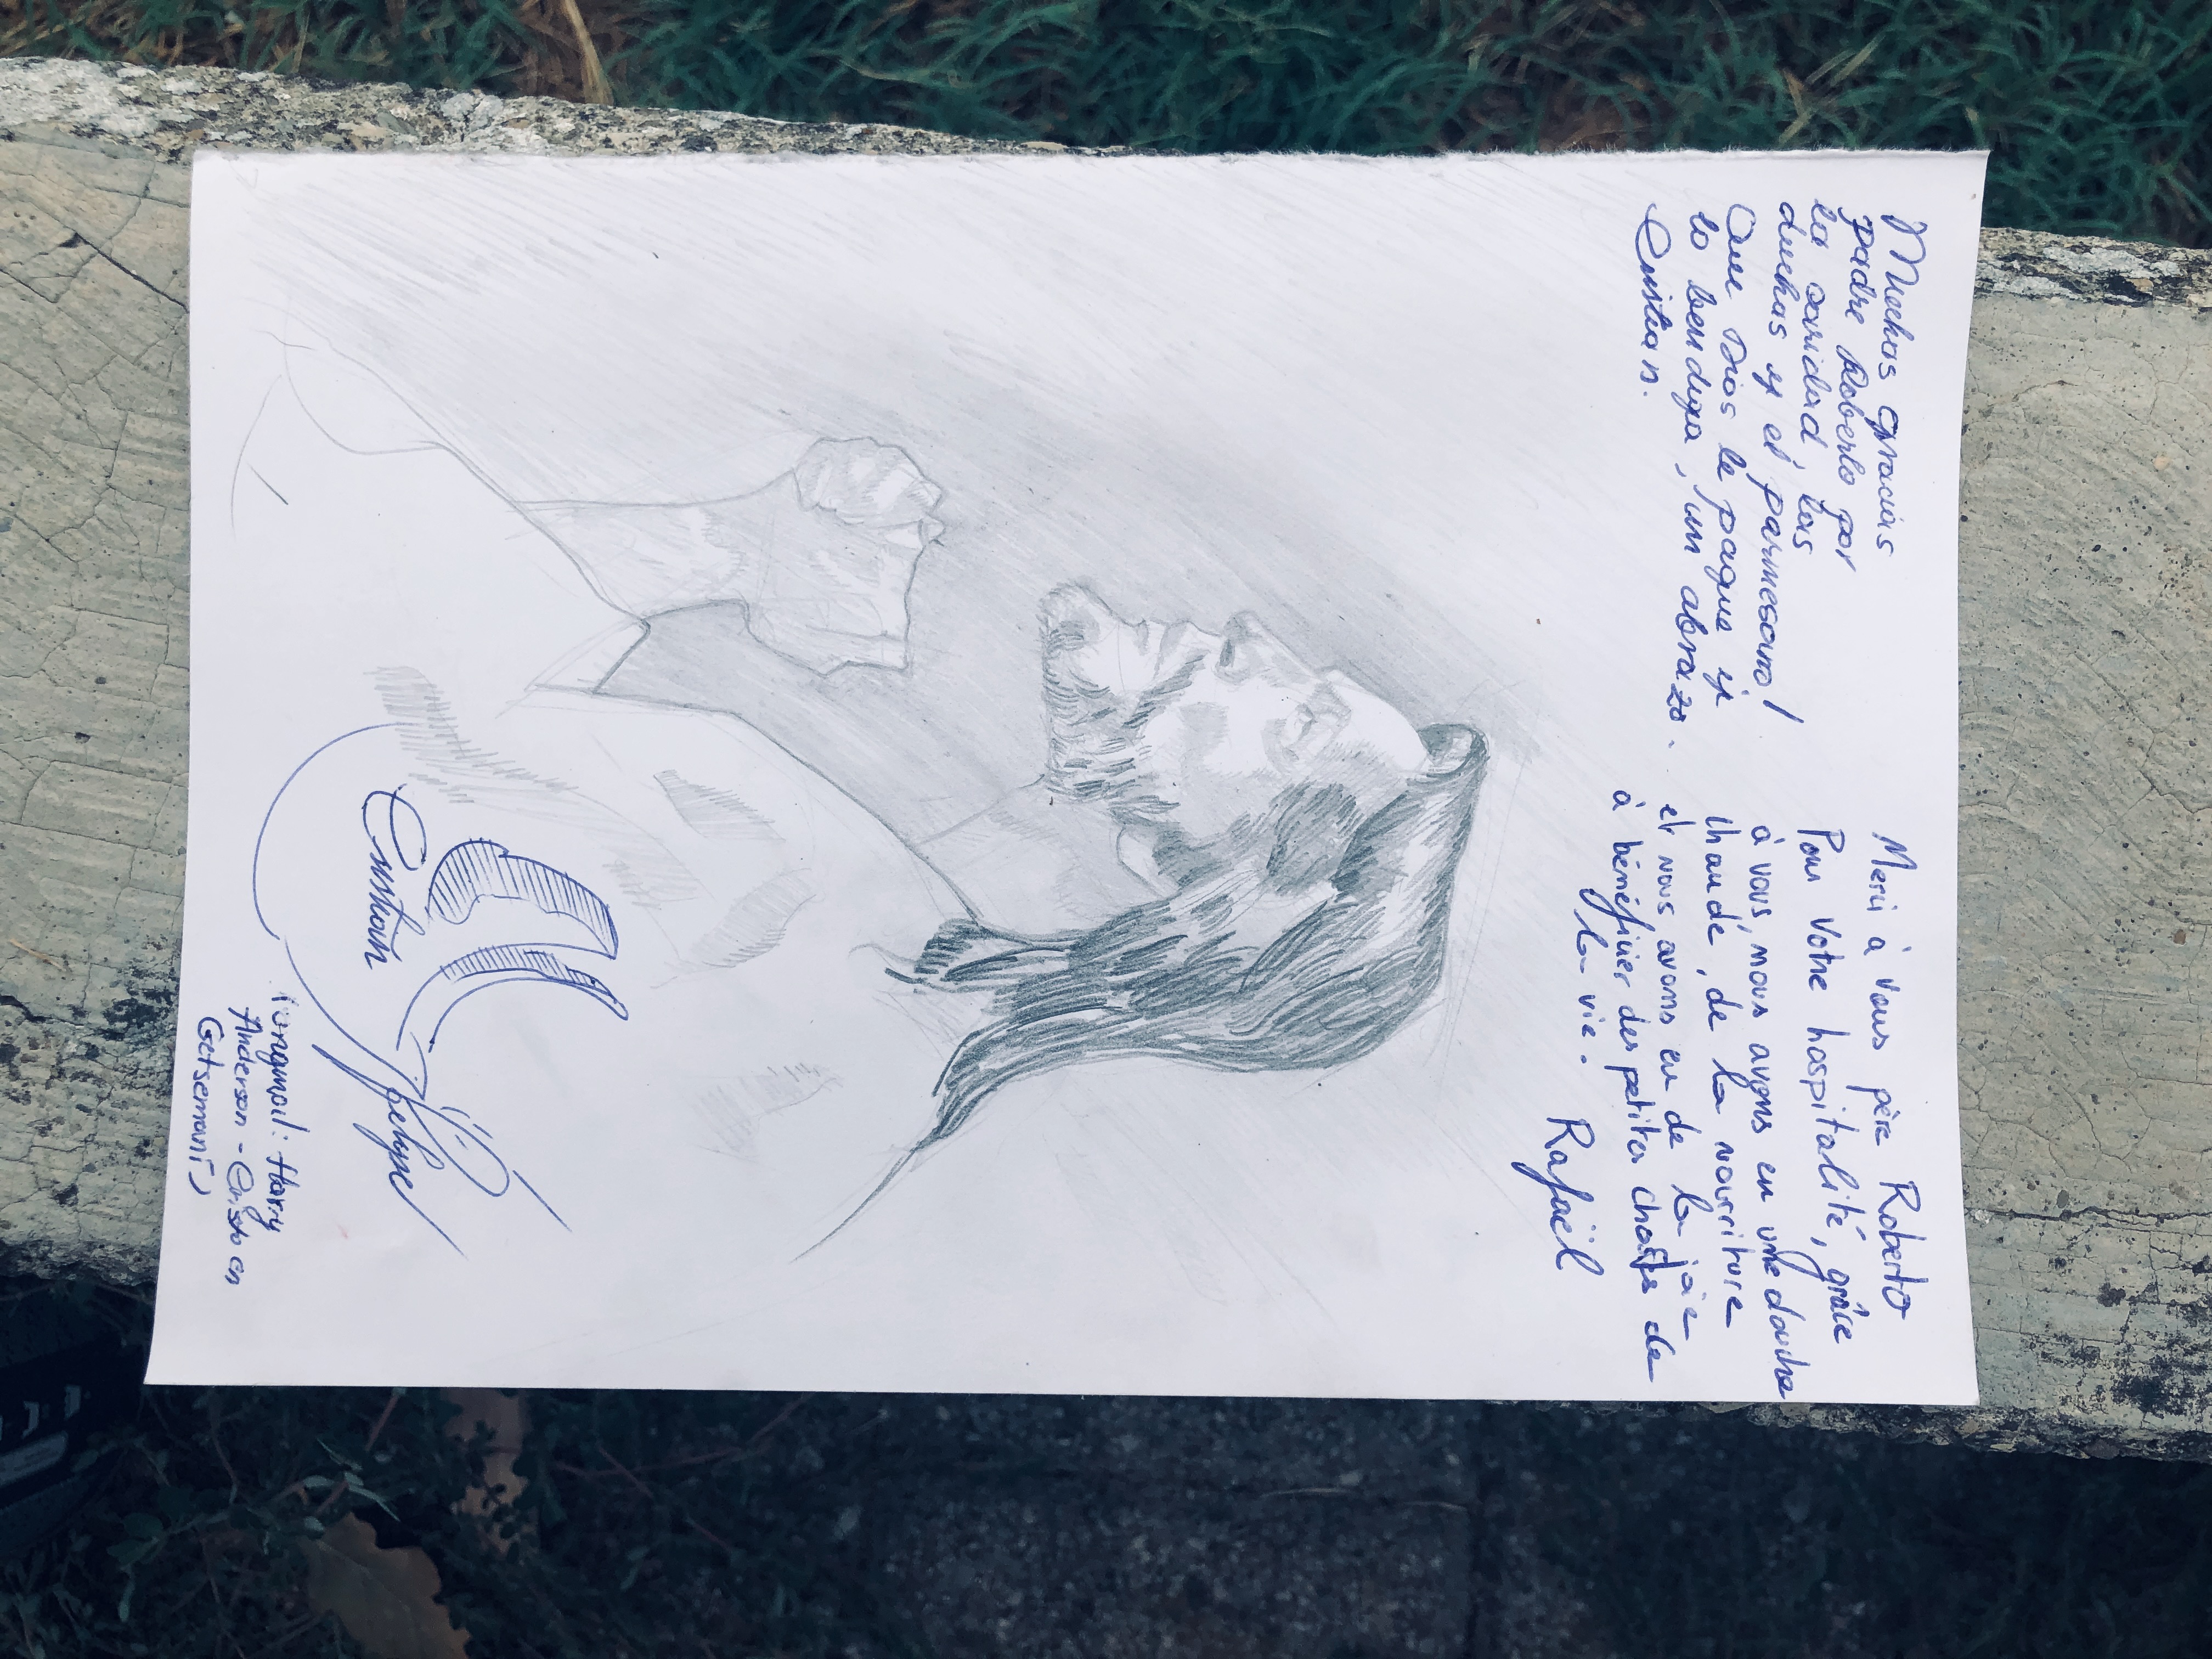 Muchas gracias
padre Roberto por
la caridad, las
duchas y el parmesano!
Que Dios le pague y
lo bendiga, un abrazo.
Cristian.
Merci à vous père Roberto
Pour votre hospitalité, grâce
à vous, nous avons eu une douche
chaude, de la nourriture
et nous avons eu de la joie
à bénéficier des petites choses de
la vie.
Rafaël
Cristian
Felipe
original: Harry
Anderson - Cristo en
Getsemaní